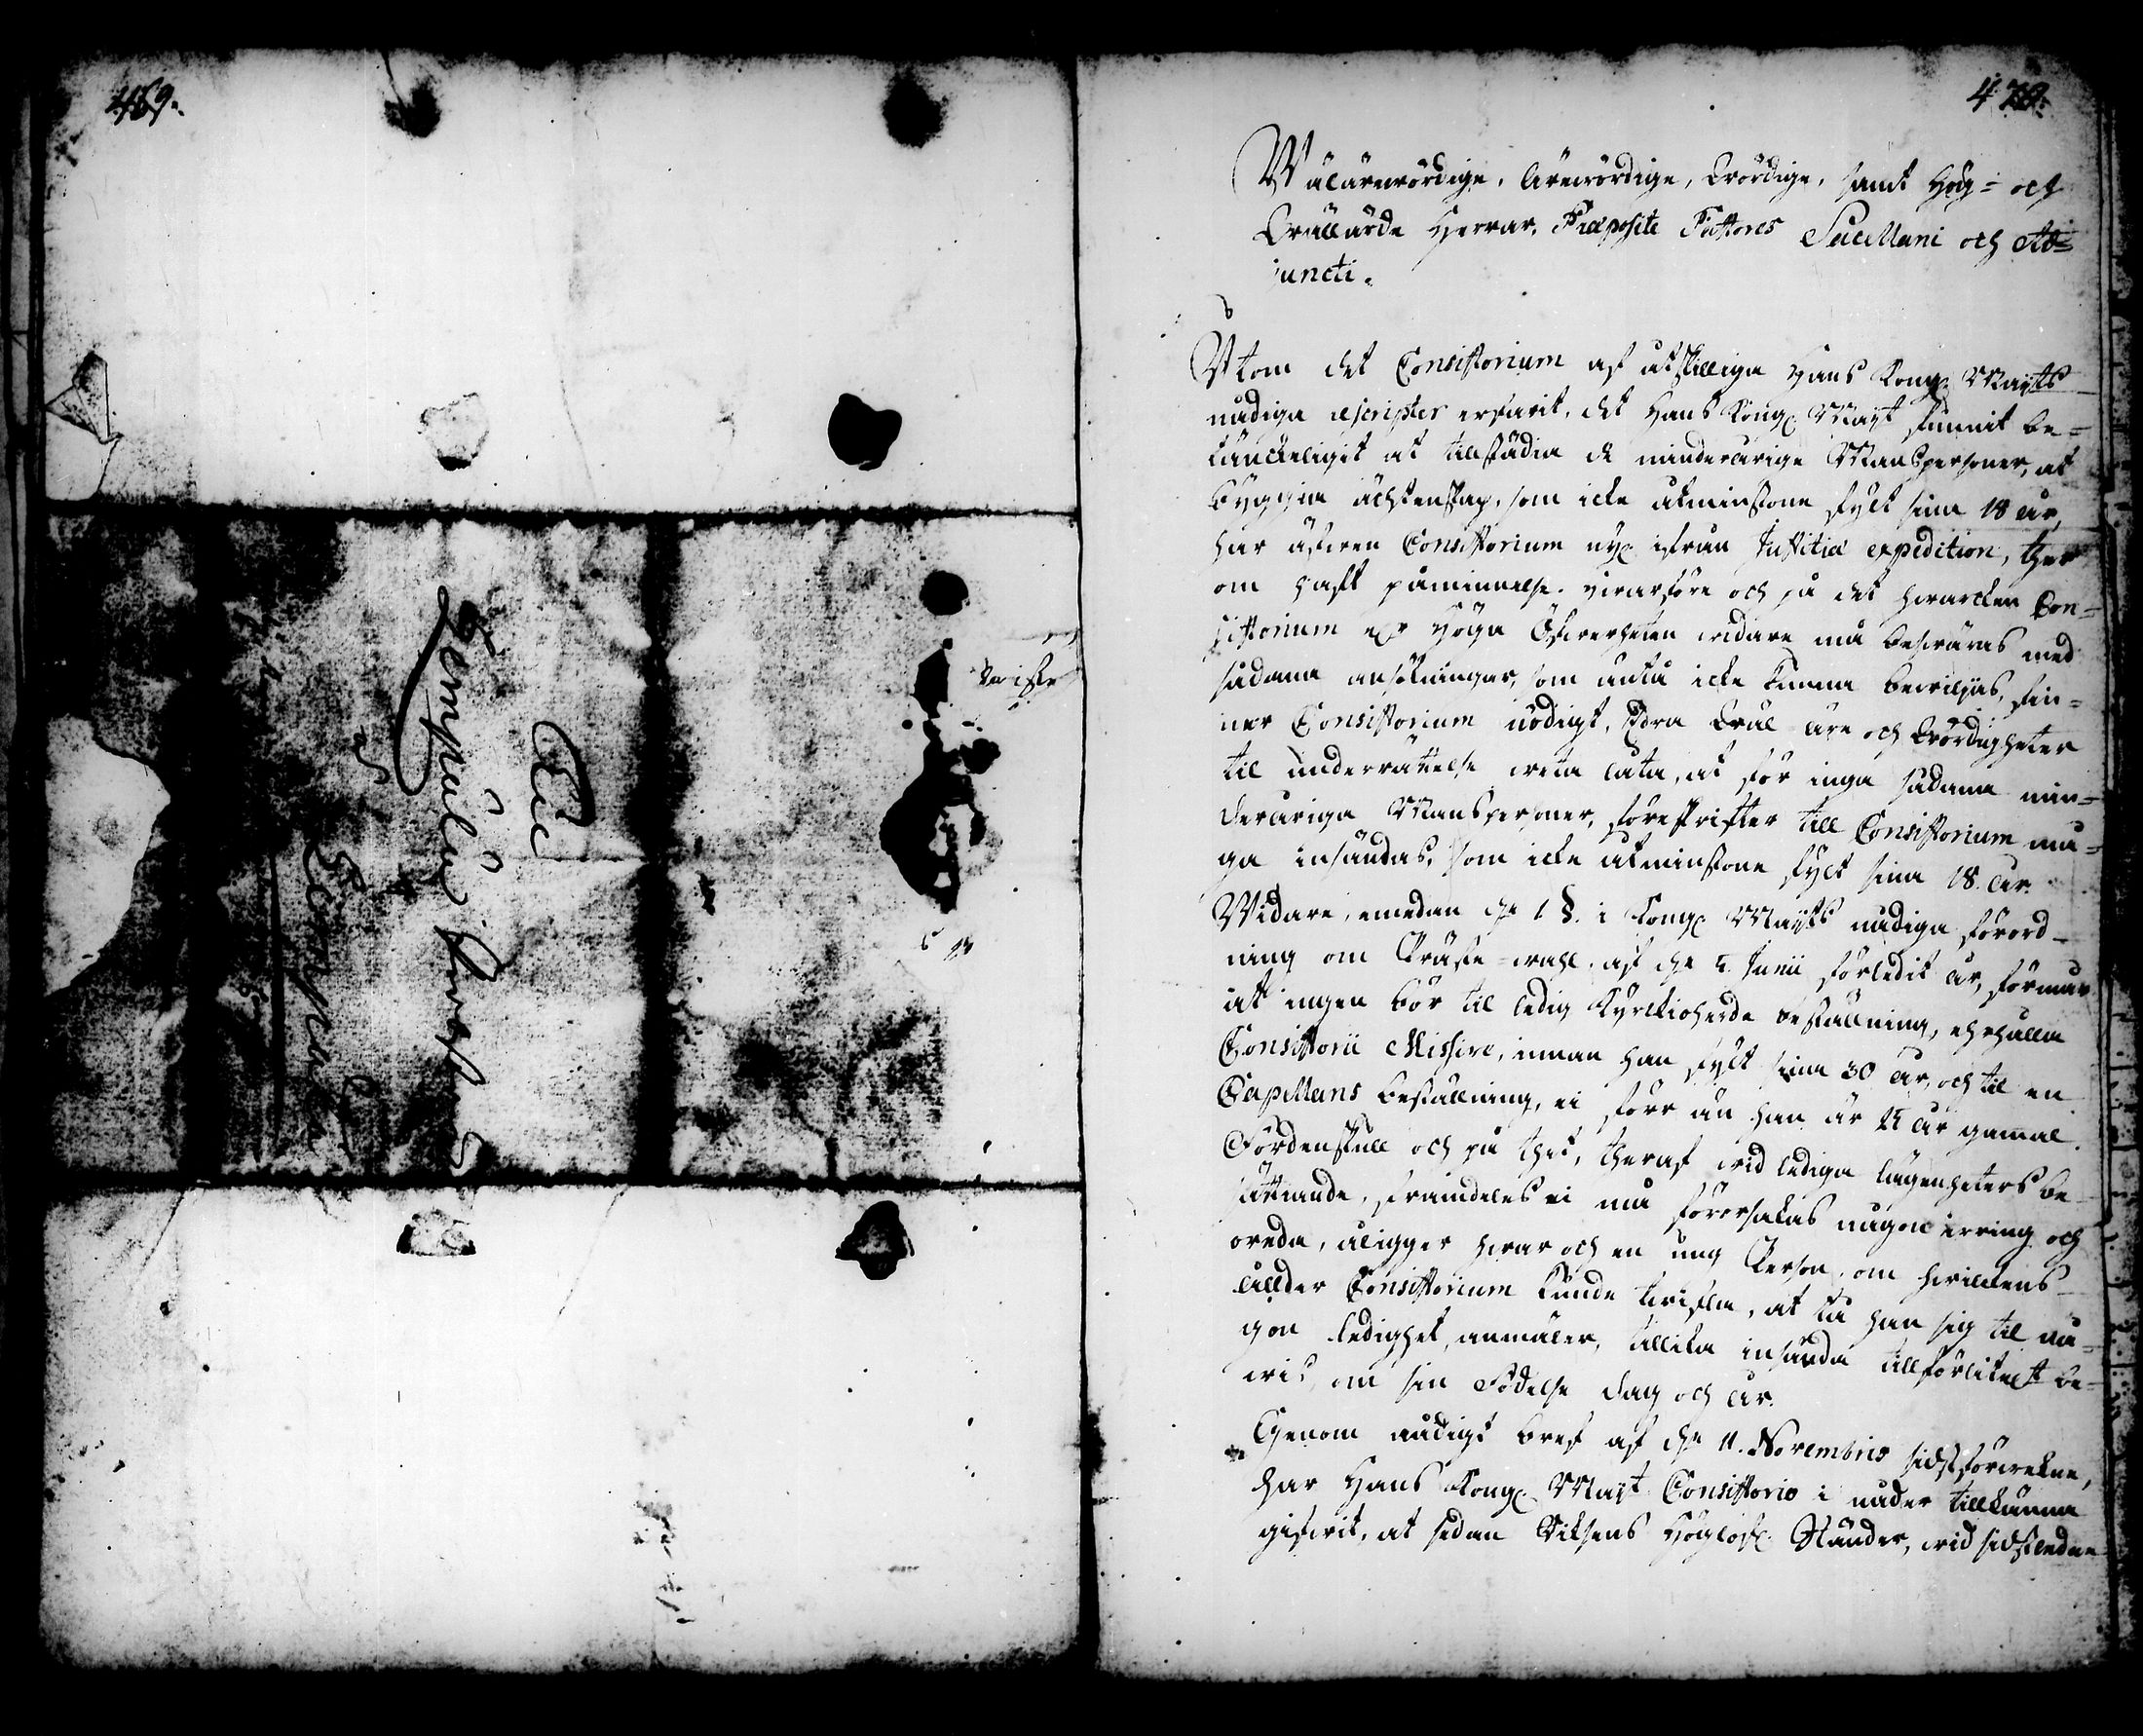 469.
Till
Kempele
Kempele
470.
Wälärewördige, Ärewördige, Wördige, samt Hög- och
Wällärde Herrar, Præposite Pastores Sacellani och Ad=
juncti.
Utom det Consistorium af åtskilliga Hans Kongl. Mayts
nådiga rescripter erfarit, det Hans Kongl. Mayt funnit be=
tänckeligit at tillstädia de minderårige Manspersoner, at
byggia ächtenskap, som icke åtminstone fylt sina 18 år,
har äfwen Consistorium nyl. ifrån Justitiæ expedition, ther
om haft påminnelse. Hwarföre och på det hwarcken Con=
sistorium el:r Höga Öfwerheten widare må beswäras med
sådana ansökningar, som ändå icke kunna bewiljas, fin=
ner Consistorium nödigt, Edra Wäl- äre och Wördigheter
til underrättelse weta låta, at för inga sådana min=
deråriga Manspersoner, föreskrifter till Consistorium må=
ga insändas, som icke åtminstone fylt sina 18. år.
Widare, emedan de 1 §. i Kongl. Mayts nådiga förord=
ning om Präste-wahl, af de Junii förledit år, förmår
at ingen bör til ledig Kyrckioherde beställning, erhålla
Consistorii Missive, innan han fylt sina 30 år, och til en
Capellans beställning, ei förr än han är 25 år gamal.
Fördenskull och på thet, theraf wid lediga lägenheters be=
sättiande, framdeles ei må förorsakas någon irring och
oreda, åligger hwar och en ung Person, om hwilckens
ålder Consistorium kunde twifla, at tå han sig til nå=
gon ledighet, anmäler, tillika insända tillförlitel:t be=
wis, om sin Födelse dag och år.
Genom nådigt bref af den 11. Novembris sidstförwekne,
har Hans Kongl. Mayt Consistorio i nåder tillkänna
gifwit, at sedan Riksens Höglofl. Ständer, wid sidstledne